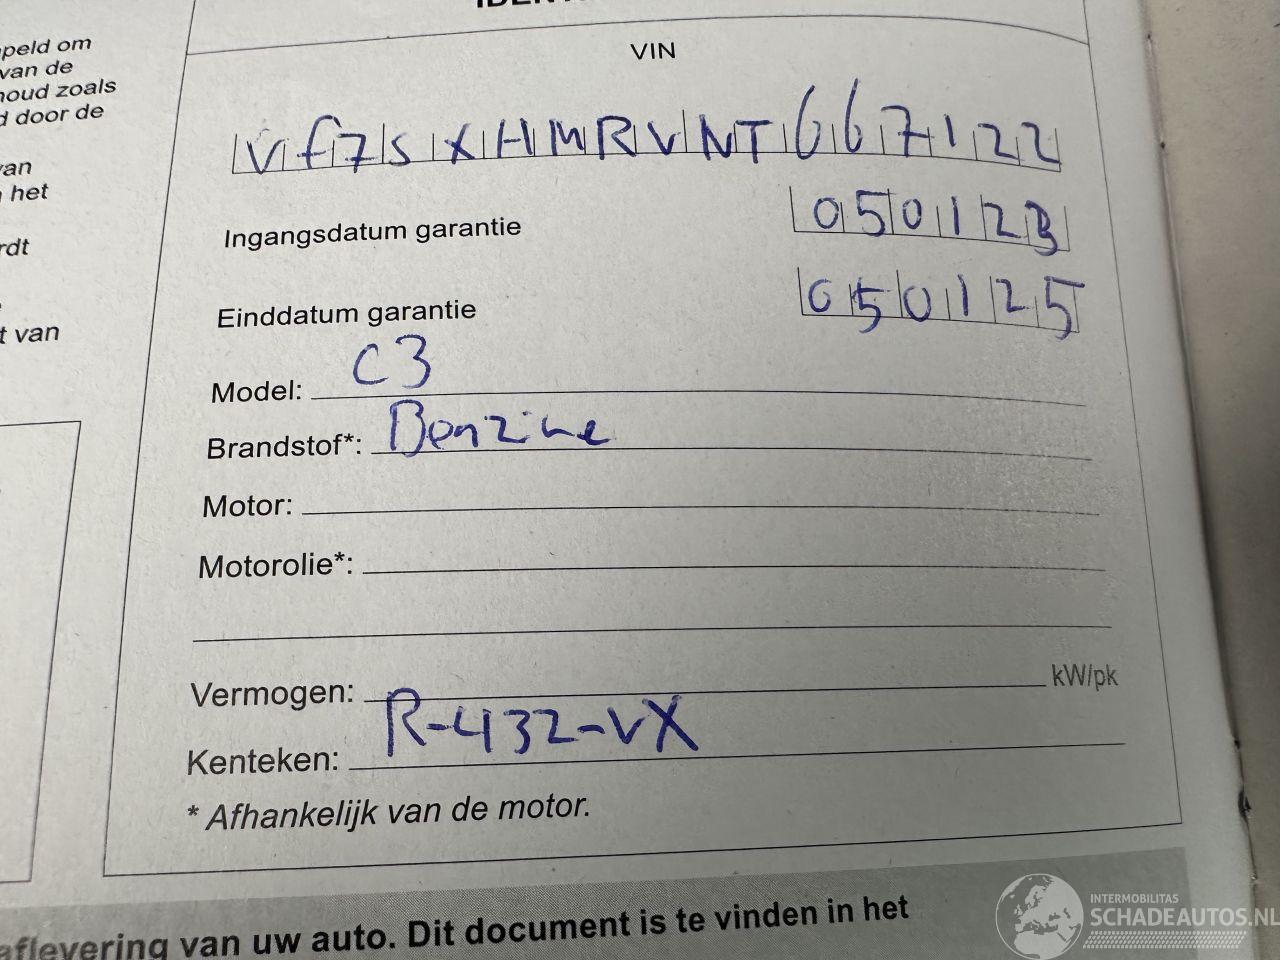 peld om
van de
houd zoals
d door de
van
het
rdt
t van
VIN
Vf7SXHMRVNT667122
Ingangsdatum garantie 050123
Einddatum garantie 050125
Model: C3
Brandstof*: Benzine
Motor:
Motorolie*:
Vermogen: kW/pk
Kenteken: R-432-VX
* Afhankelijk van de motor.
aflevering van uw auto. Dit document is te vinden in het
INTERMOBILITAS
SCHADEAUTOS.NL